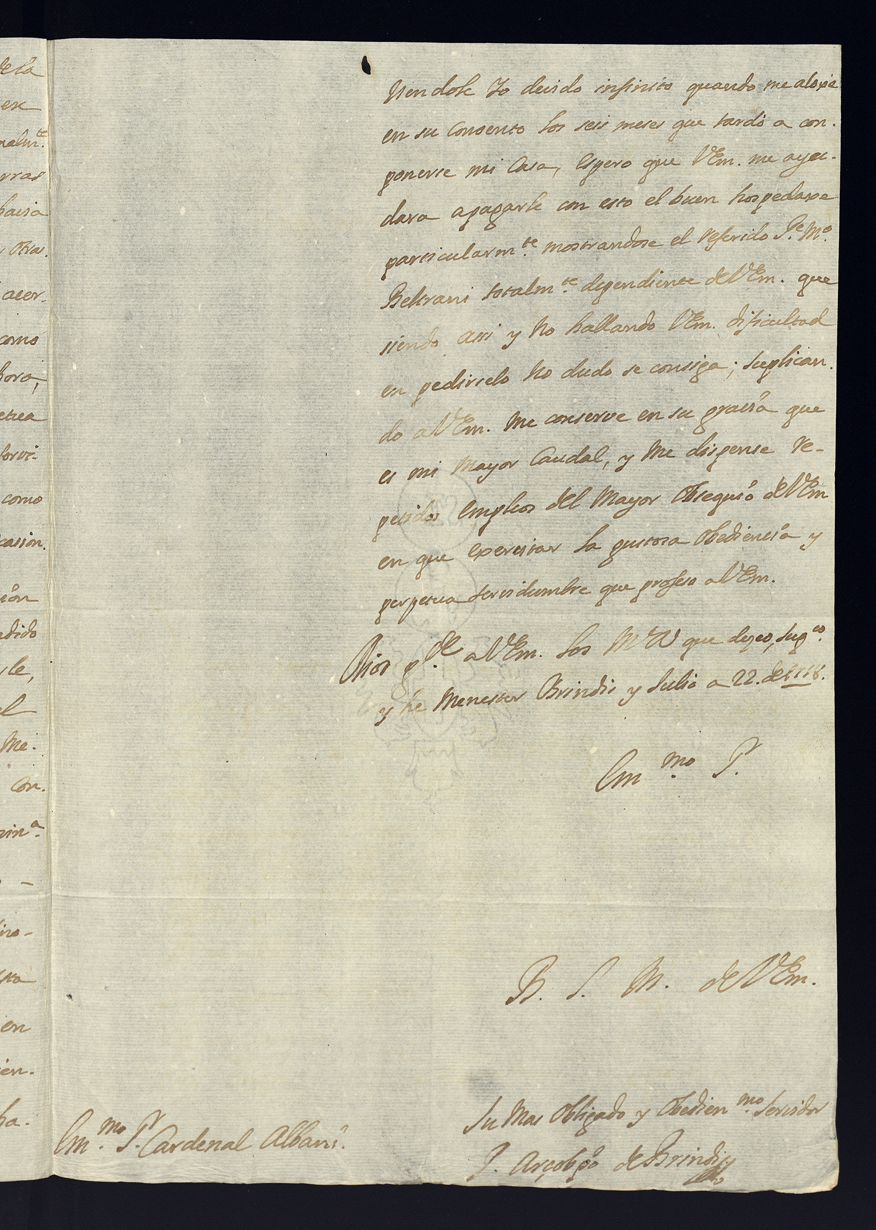 viendole Yo devido infinito quando me alojè
en su Convento los seis meses que tardò a con-
ponerse mi Casa, Espero que VEm. me ayu-
dara apagarle con esto el buen hospedaxe
particularm.te mostrandose el referido P.e M.o
Beltrani totalm.te dependiente de VEm. que
siendo assi y no hallando VEm. dificultad
en pedirselo no dudo se consiga; suplican-
do a VEm. me conserve en su gracia que
es mi Mayor Caudal, y me dispense re-
petidos Empleos del Mayor Obsequio de VEm
en que exercitar la gustosa Obediencia y
perpetua servidumbre que profeso a VEm.
Dios g.de a VEm. los m.s a.s que deseo, sup.co
y he Menester Brindis y Julio a 22. de
Em.mo S.r
B. S. M. de VEm.
Su Mas Obligado y Obedien.mo Servidor
P. Arçobpo de Brindis
Em.mo S.r Cardenal Albani.
de la
ex
malm.te
rras
hacia
Otra
acer-
como
hora,
como
casion
ion
dido
rle,
el
Me-
con-
en
ha.